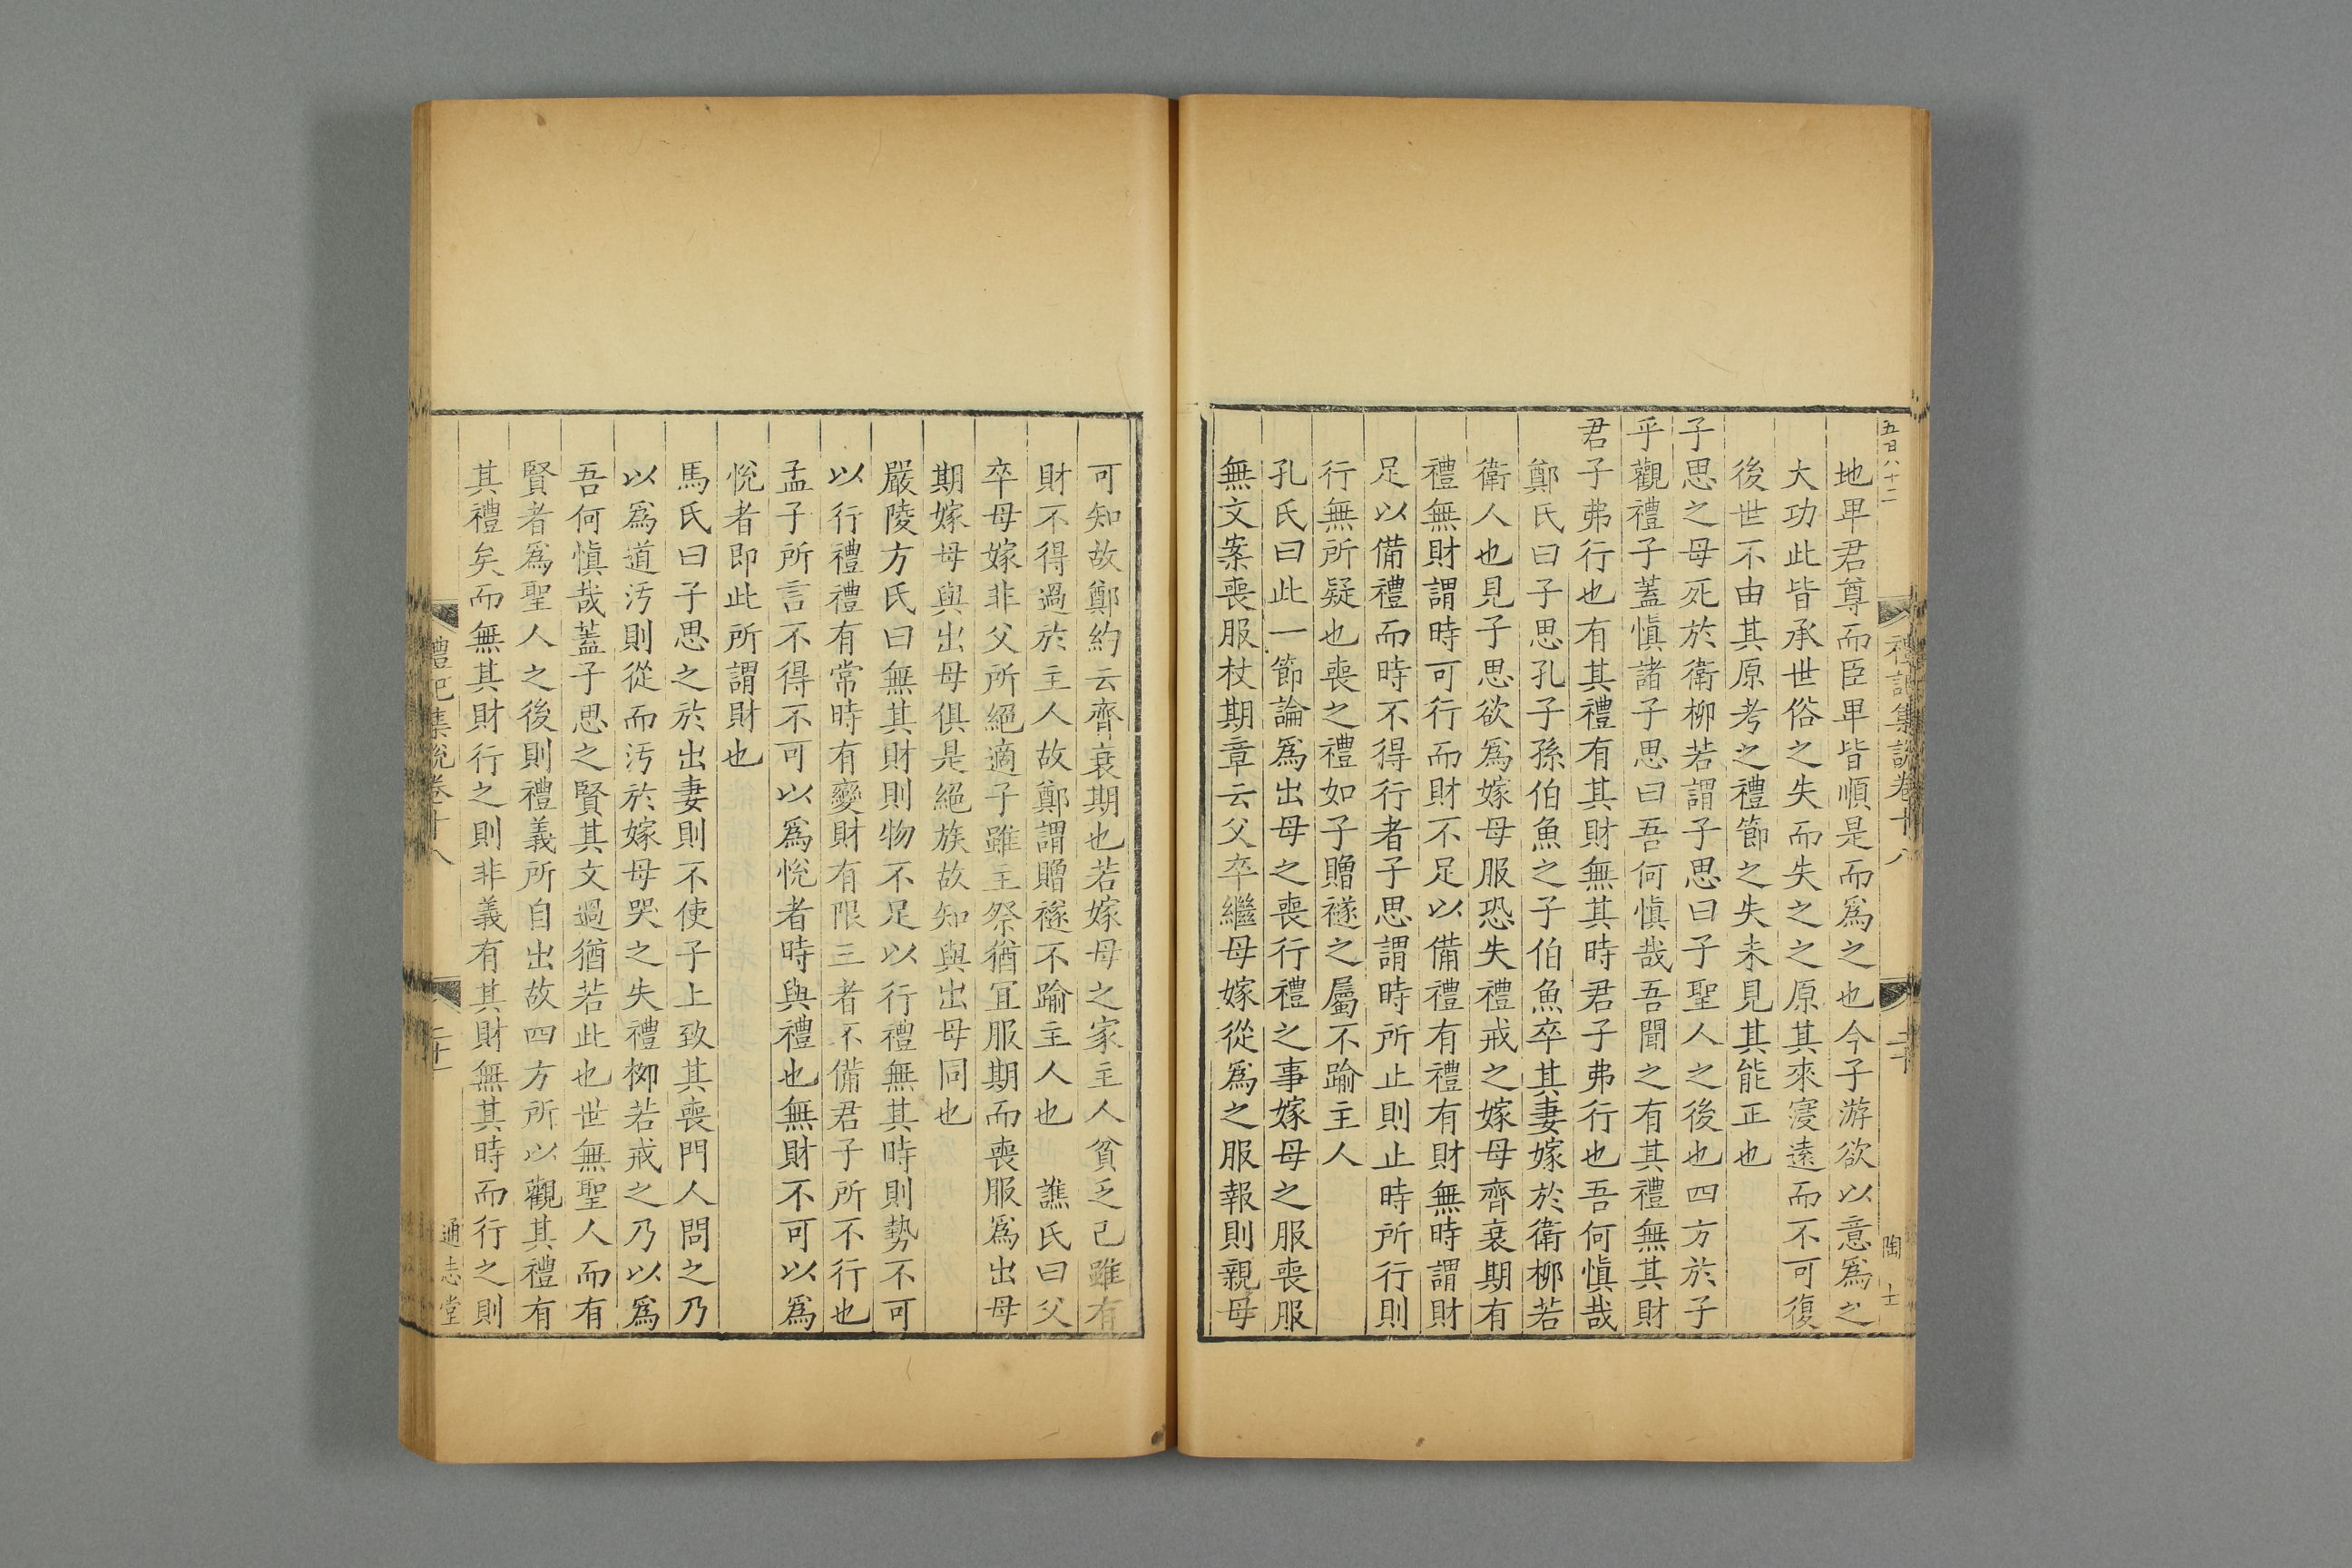 五百八十二
禮記集説卷十八
二十
陶士
地卑君尊而臣卑皆順是而爲之也今子游欲以意爲之
大功此皆承世俗之失而失之之原其來寖遠而不可復
後世不由其原考之禮節之失未見其能正也
子思之母死於衛柳若謂子思曰子聖人之後也四方於子
乎觀禮子蓋慎諸子思曰吾何慎哉吾聞之有其禮無其財
君子弗行也有其禮有其財無其時君子弗行也吾何慎哉
鄭氏曰子思孔子孫伯魚之子伯魚卒其妻嫁於衛柳若
衛人也見子思欲爲嫁母服恐失禮戒之嫁母齊衰期有
禮無財謂時可行而財不足以備禮有禮有財無時謂財
足以備禮而時不得行者子思謂時所止則止時所行則
行無所疑也喪之禮如子贈襚之屬不踰主人
孔氏曰此一節論爲出母之喪行禮之事嫁母之服喪服
無文案喪服杖期章云父卒繼母嫁從爲之服報則親母
可知故鄭約云齊衰期也若嫁母之家主人貧乏己雖有
財不得過於主人故鄭謂贈襚不踰主人也 譙氏曰父
卒母嫁非父所絕適子雖主祭猶宜服期而喪服爲出母
期嫁母與出母俱是絕族故知與出母同也
嚴陵方氏曰無其財則物不足以行禮無其時則勢不可
以行禮禮有常時有變財有限三者不備君子所不行也
孟子所言不得不可以爲悅者時與禮也無財不可以爲
悅者即此所謂財也
馬氏曰子思之於出妻則不使子上致其喪門人問之乃
以爲道汚則從而汚於嫁母哭之失禮柳若戒之乃以爲
吾何慎哉蓋子思之賢其文過猶若此也世無聖人而有
賢者爲聖人之後則禮義所自出故四方所以觀其禮有
其禮矣而無其財行之則非義有其財無其時而行之則
禮記集説卷十八
二十一
通志堂